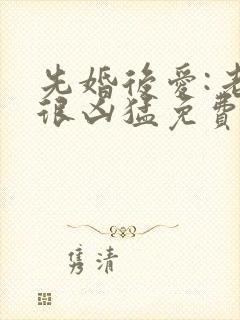 先婚後愛:老
很凶猛免費
隽清